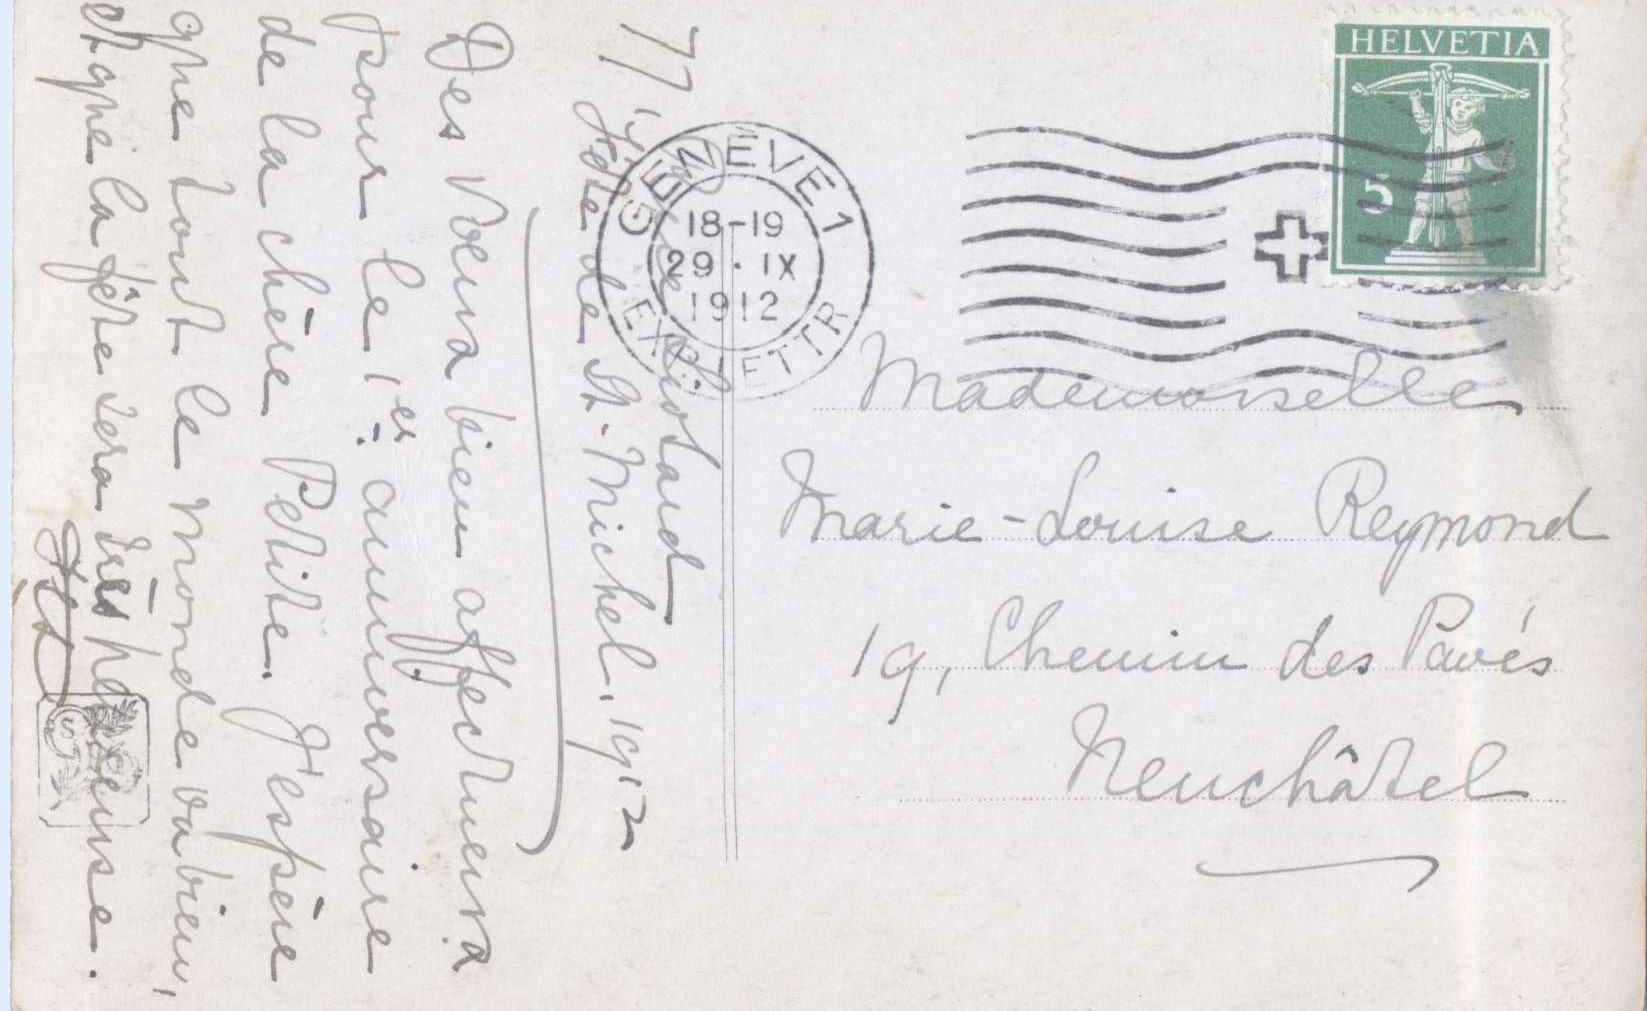 77, rue Liotard
Fête de St-Michel. 1912
Des voeux bien affectueux
pour le 1er anniversaire
de la chère Petite. J'espère
que tout le monde va bien,
et que la fête sera très heureuse.
HELVETIA
5
GENÈVE 1
18-19
29. IX
1912
EXP. LETTR.
Mademoiselle
Marie-Louise Reymond
19, Chemin des Pavés
Neuchâtel